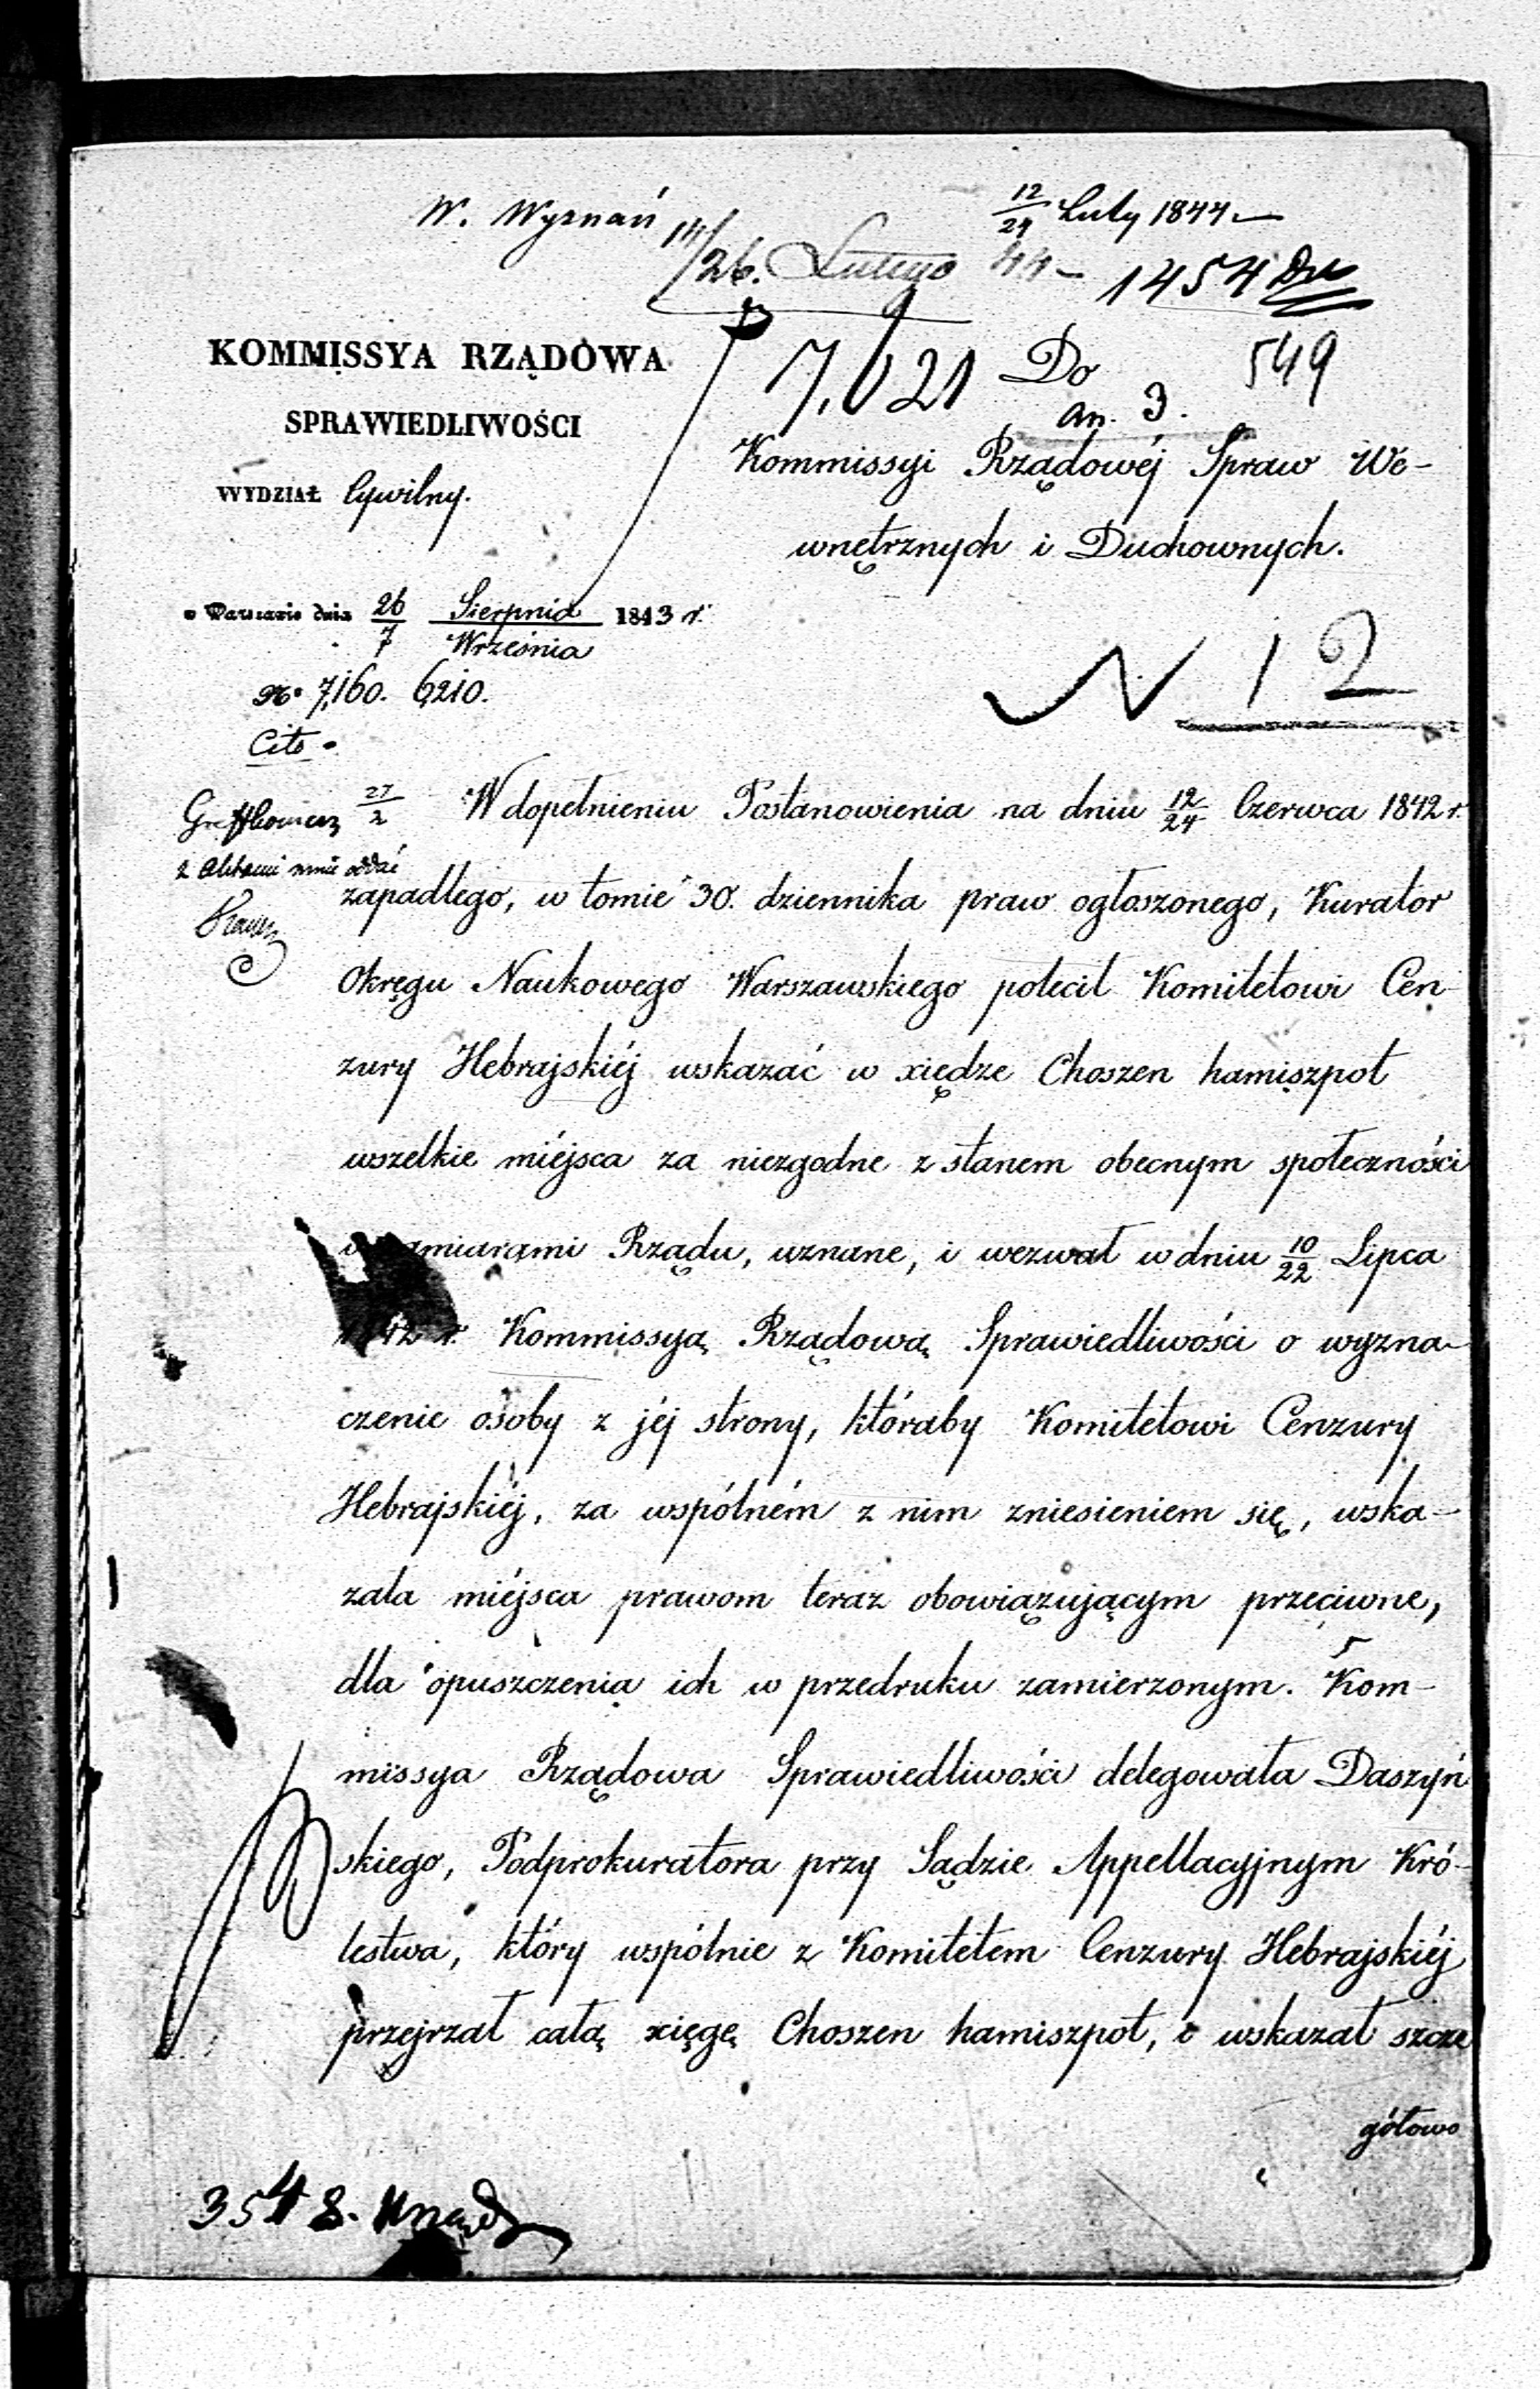 W. Wyznań
12/24 Luty 1844
14/26. Lutego 44
1454
7,021
549
KOMMISSYA RZĄDOWA
SPRAWIEDLIWOŚCI
WYDZIAŁ Cywilny.
Do
an. 3.
Kommissyi Rządowéj Spraw We-
wnętrznych i Duchownych.
w Warszawie dnia 26/7 Sierpnia/Września 1843 r.
No 7,160. 6210.
Cito
N 12
27/2
W dopełnieniu Postanowienia na dniu 12/24 Czerwca 1842 r.
zapadłego, w tomie 30. dziennika praw ogłoszonego, Kurator
Okręgu Naukowego Warszawskiego polecił Komitetowi Cen
zury Hebrajskiéj wskazać w xiędze Choszen hamiszpot
wszelkie miéjsca za niezgodne z stanem obecnym społeczności
Rządu, uznane, i wezwał w dniu 10/22 Lipca
r. Kommissyą Rządową Sprawiedliwości o wyzna-
czenie osoby z jéj strony, któraby Komitetowi Cenzury
Hebrajskiéj, za wspólném z nim zniesieniem się, wska-
zała miéjsca prawom teraz obowiązującym przeciwne,
dla opuszczenia ich w przedruku zamierzonym. Kom-
missya Rządowa Sprawiedliwości delegowała Daszyń
skiego, Podprokuratora przy Sądzie Appellacyjnym Kró-
lestwa, który wspólnie z Komitetem Cenzury Hebrajskiéj
przejrzał całą xięgę Choszen hamiszpot, i wskazał szcze
gółowo
354